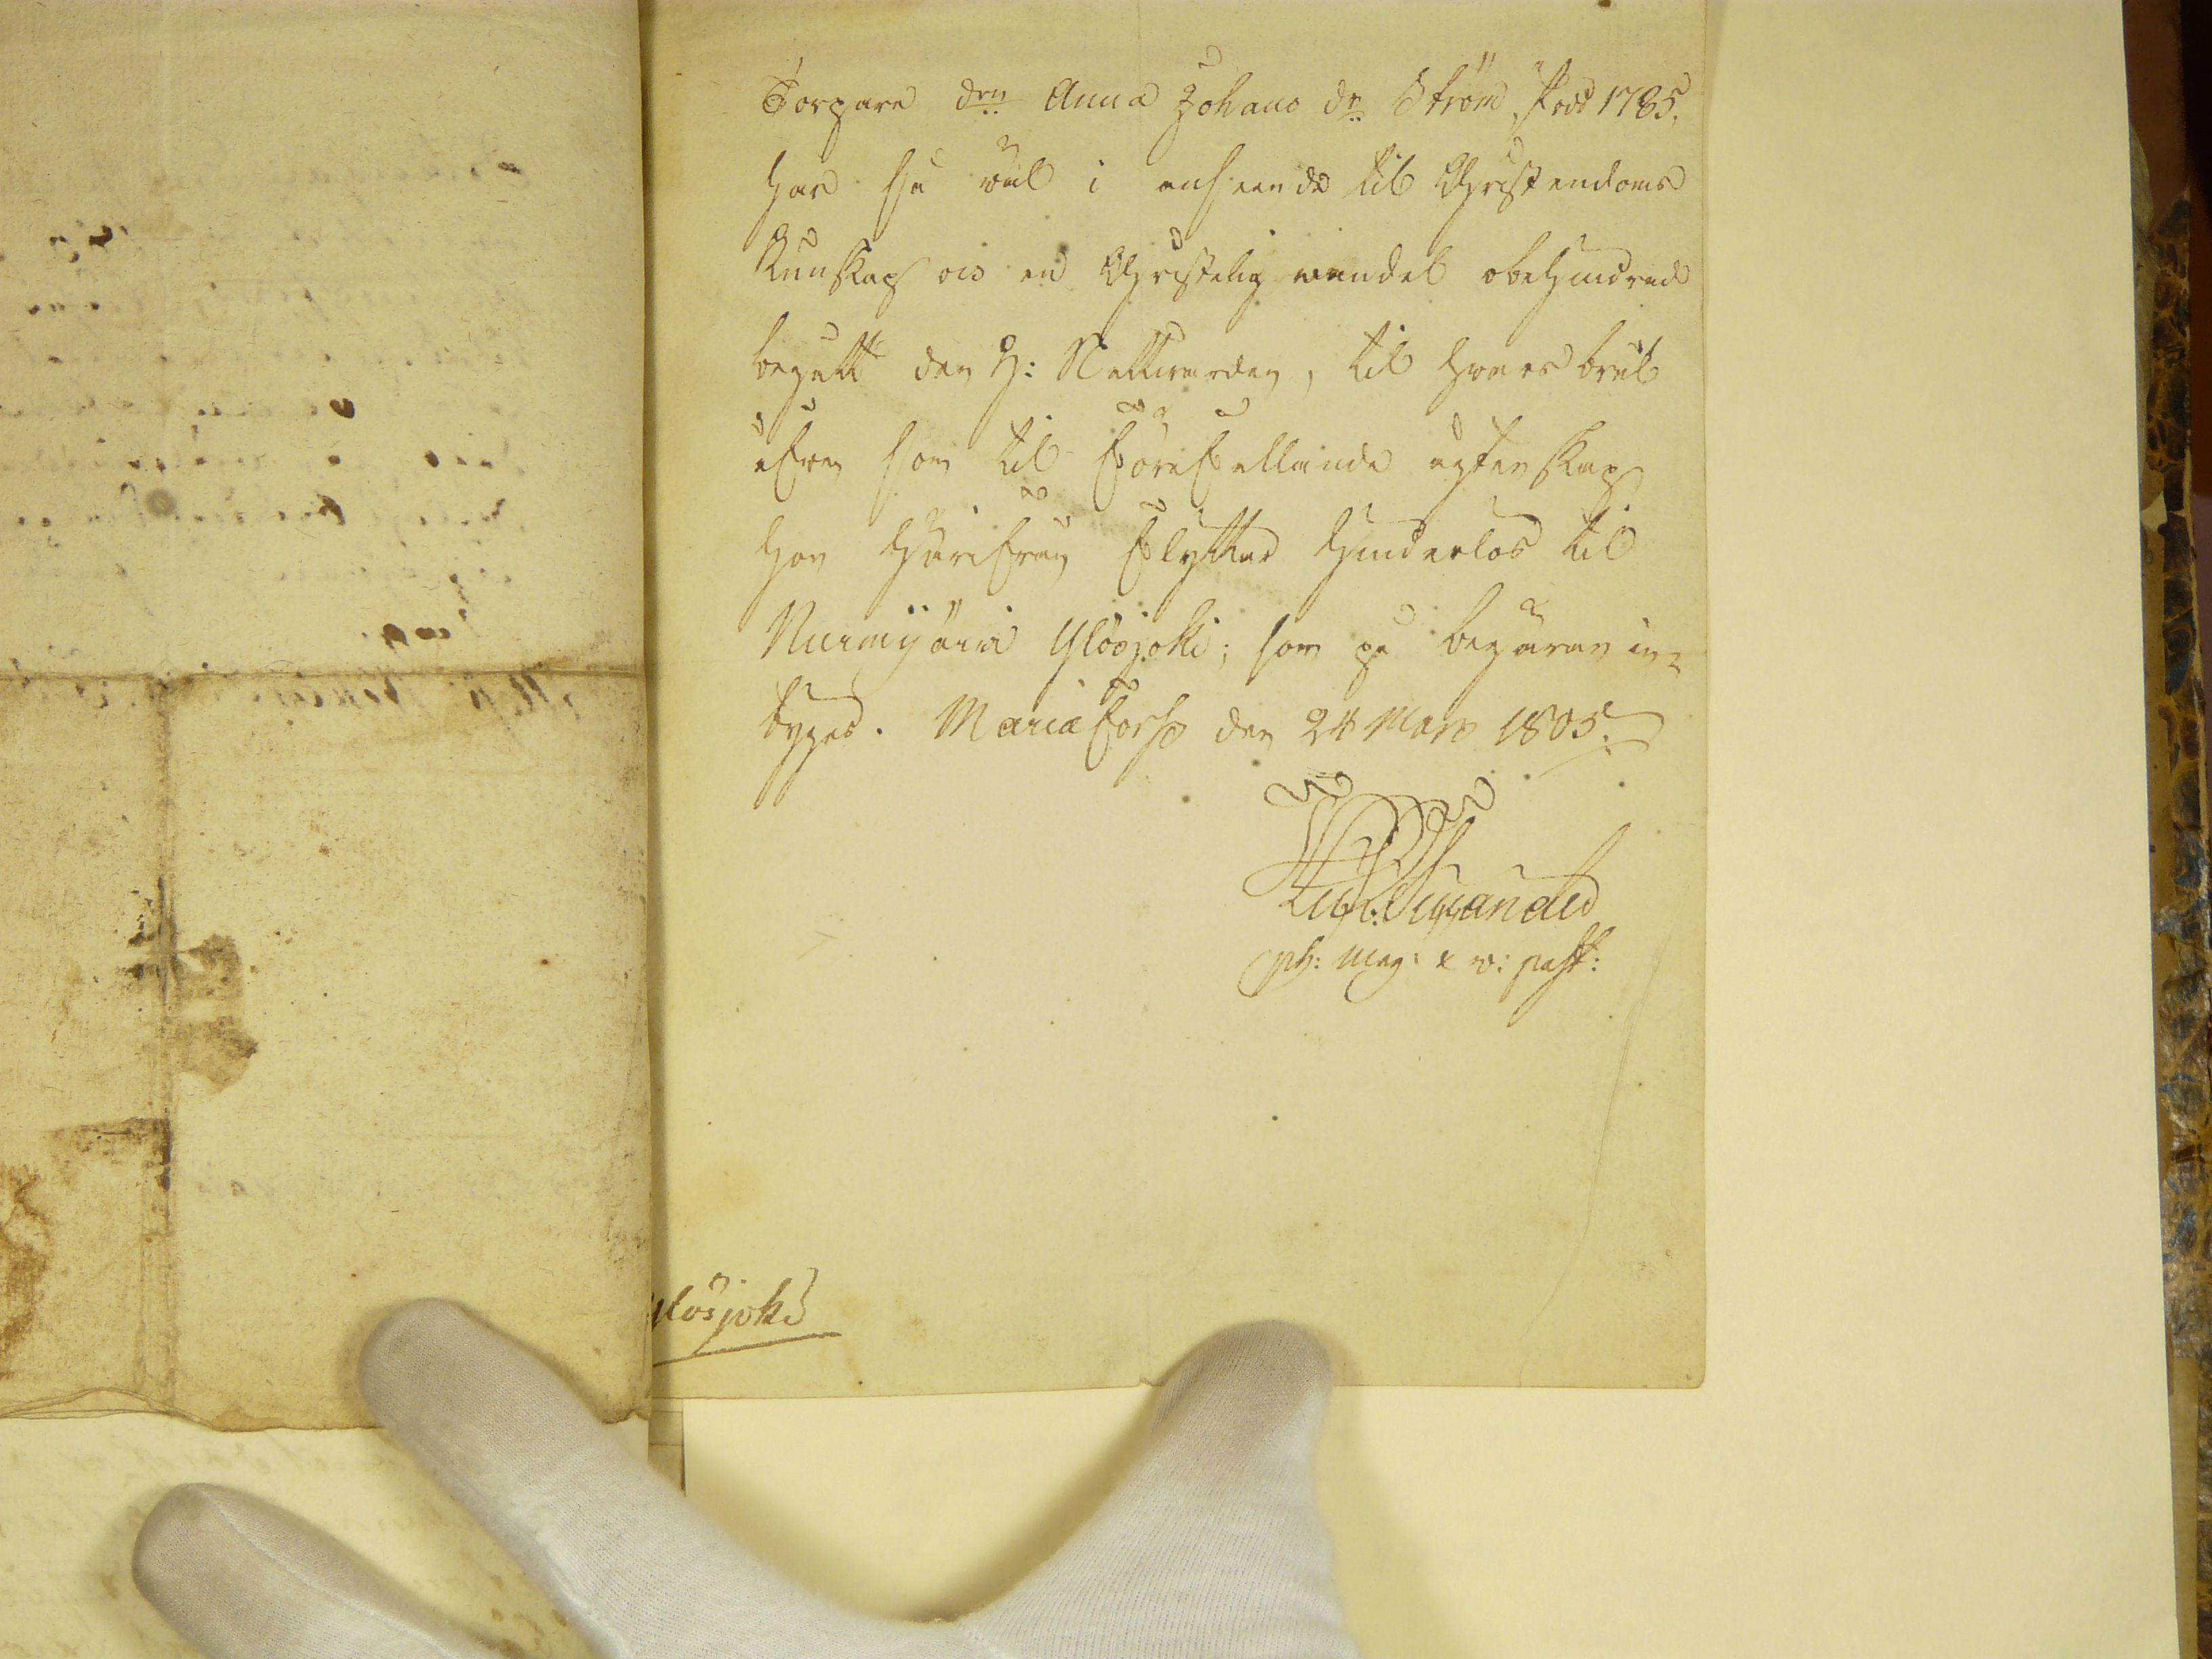 Torpare drn Anna Johans dr Ström, född 1785,
har så väl i anseende til Christendoms
Kunskap ocs en Christelig wandel obehindrad
begått den H: Nattwarden, til hwars bruk
äfven som til förefallande ägtenskap
hon härifrån flyttar hinderlös til
Nurmijärvi Ylösjoki; som på begäran in-
tygas. Mariæfors den 24 Mars 1805.
ph: mag: & v: past:
Ylösjoki